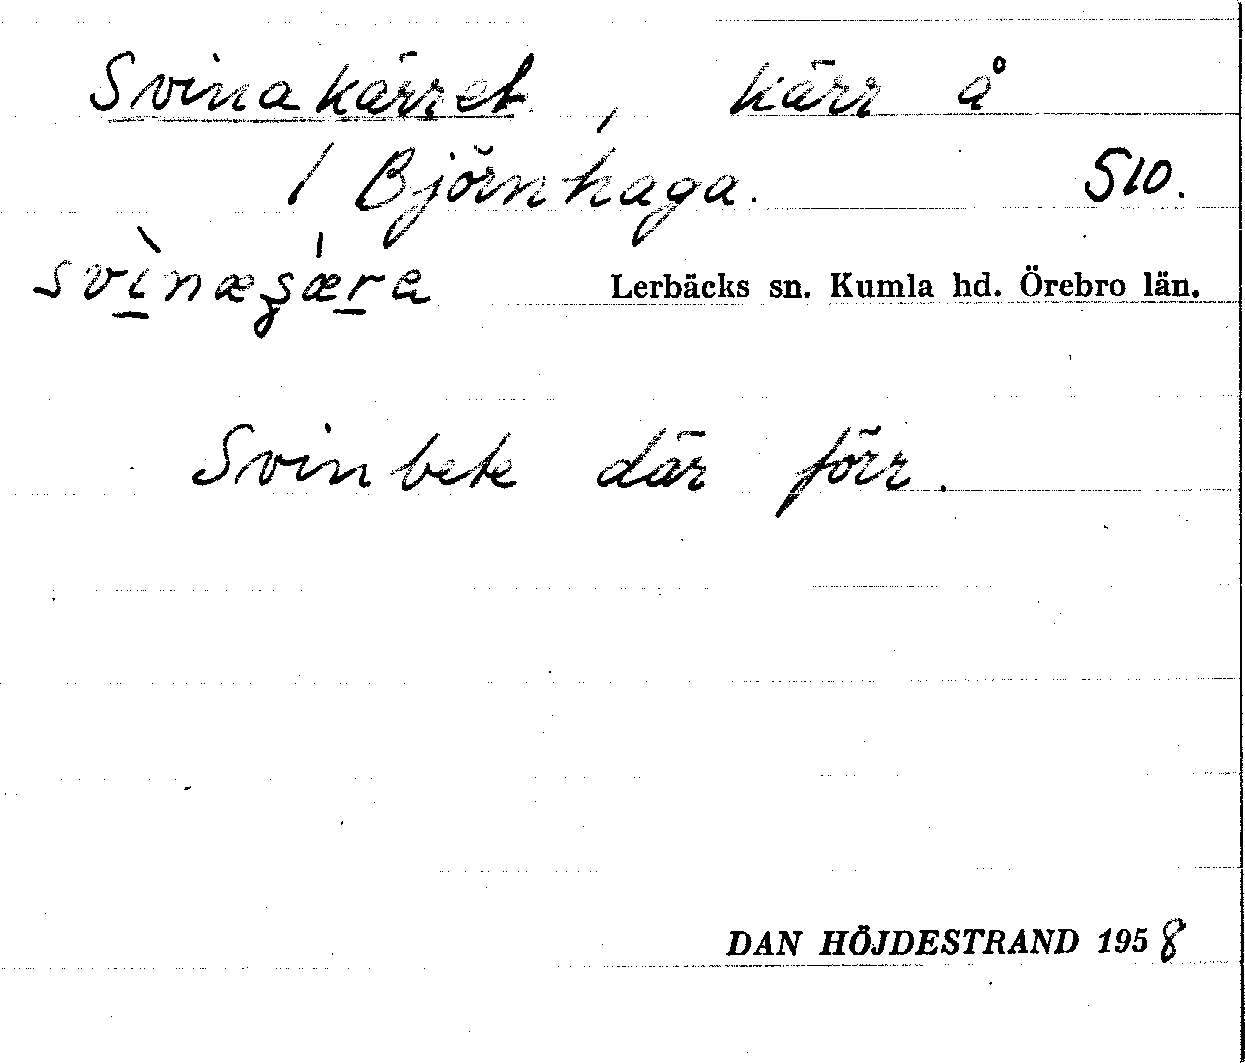 Svinakärret, kärr å
/ Björnhaga. 510.
Lerbäcks sn. Kumla hd. Örebro län.
Svinbete där förr.
DAN HÖJDESTRAND 1958